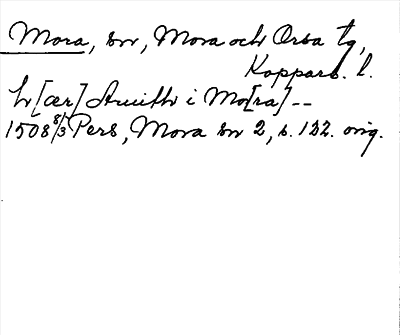 Mora, sn, Mora och Orsa tg,
Kopparb. l.
h[ær] Anuith i Mo[ra] --
1508 8/3 Pers, Mora sn 2, s. 122. orig.